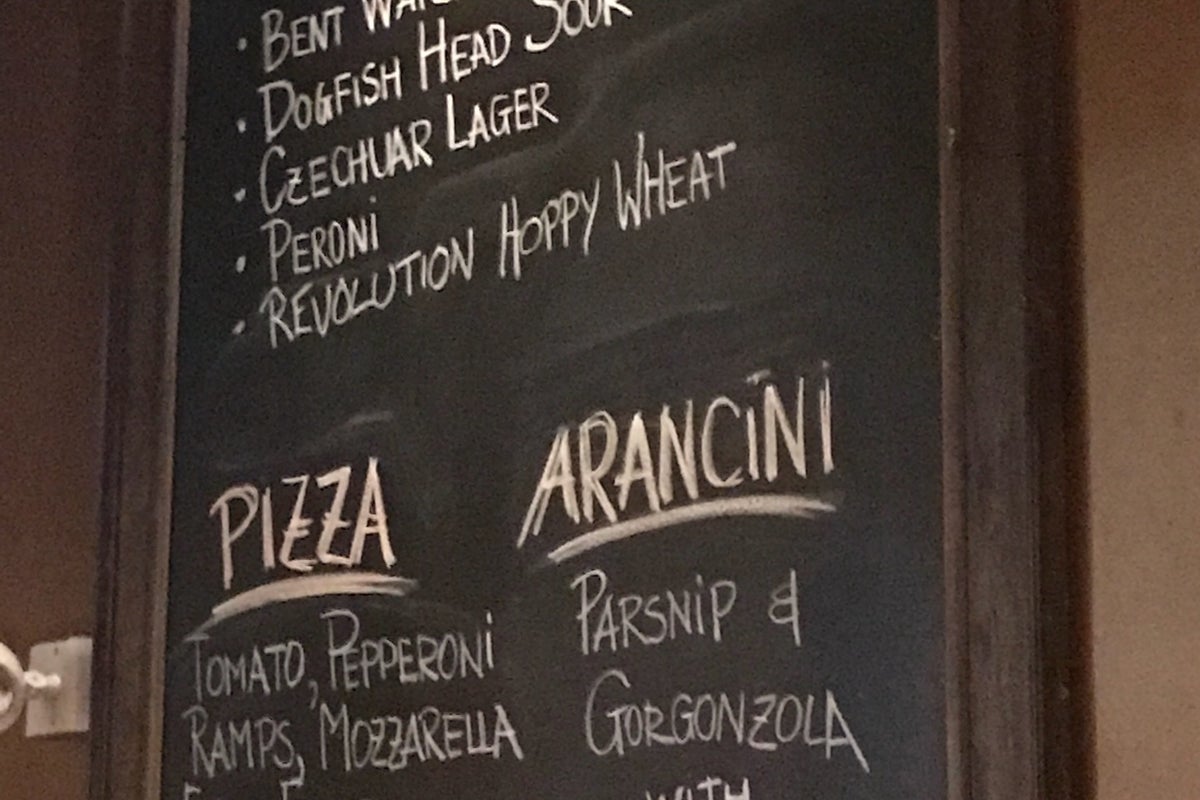 • BENT
• DOGFISH HEAD SOUR
• CZECHUAR LAGER
• PERONI
• REVOLUTION HOPPY WHEAT
PIZZA
TOMATO, PEPPERONI
RAMPS, MOZZARELLA
ARANCINI
PARSNIP &
GORGONZOLA
WITH